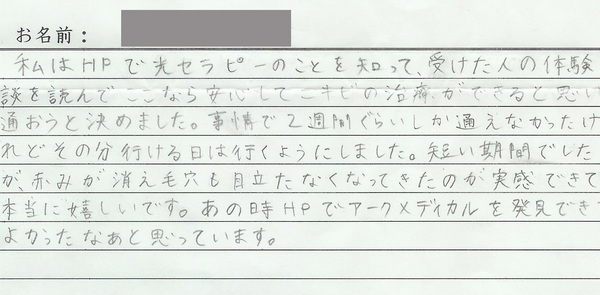 お名前：
私はHPで光セラピーのことを知って、受けた人の体験
談を読んでここなら安心してニキビの治療ができると思い
通おうと決めました。事情で2週間ぐらいしか通えなかったけ
れどその分行ける日は行くようにしました。短い期間でした
が、赤みが消え毛穴も目立たなくなってきたのが実感できて
本当に嬉しいです。あの時HPでアークメディカルを発見でき
よかったなあと思っています。